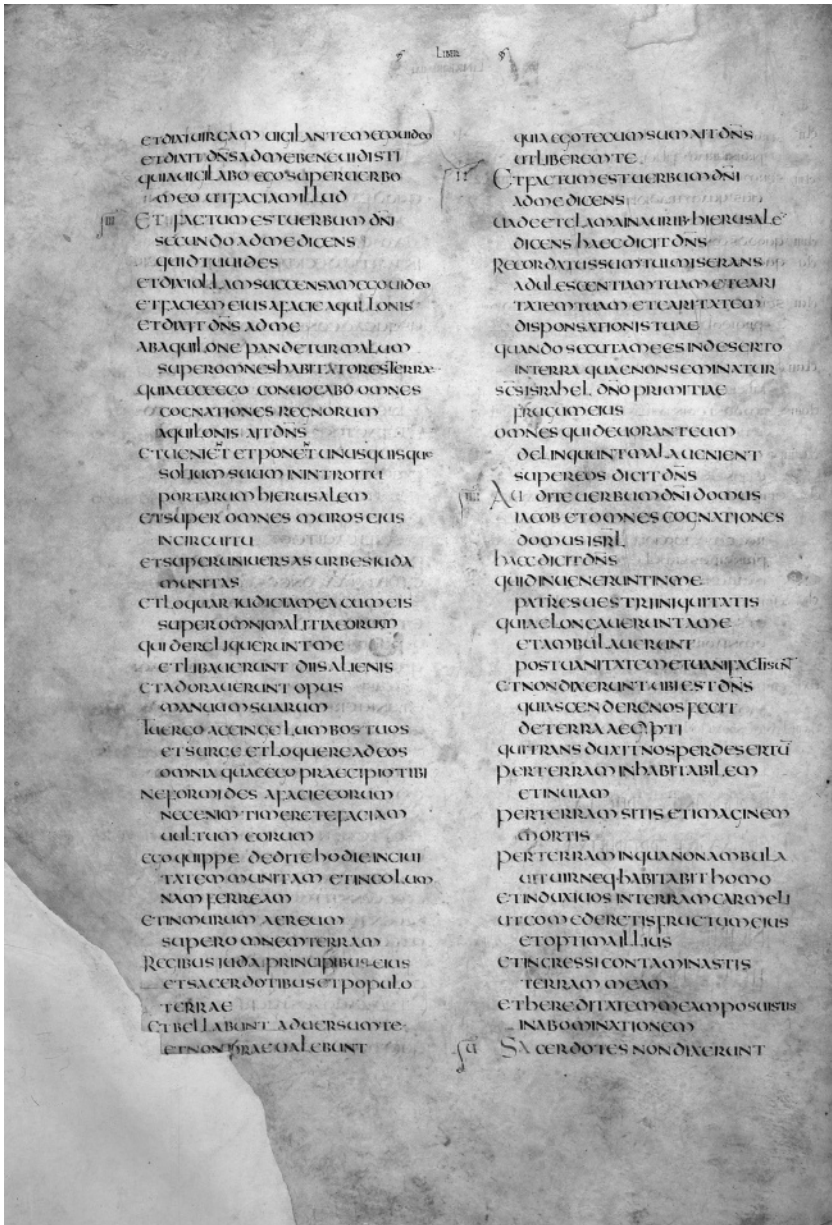 LIBER
ET DIXI UIRGAM UIGILANTEM EGO UIDEO
ET DIXIT DN̄S AD ME BENE UIDISTI
QUIA UIGILABO EGO SUPER UERBO
MEO UT FACIAM ILLUD
III ET FACTUM EST UERBUM DN̄I
SECUNDO AD ME DICENS
QUID TU UIDES
ET DIXI OLLAM SUCCENSAM EGO UIDEO
ET FACIEM EIUS A FACIE AQUILONIS
ET DIXIT DN̄S AD ME
AB AQUILONE PANDETUR MALUM
SUPER OMNES HABITATORES TERRAE
QUIA ECCE EGO CONUOCABO OMNES
COGNATIONES REGNORUM
AQUILONIS AIT DN̄S
ET UENIET ET PONET UNUSQUISQUE
SOLIUM SUUM IN INTROITU
PORTARUM HIERUSALEM
ET SUPER OMNES MUROS EIUS
IN CIRCUITU
ET SUPER UNIUERSAS URBES IUDA
MUNITAS
ET LOQUAR IUDICIA MEA CUM EIS
SUPER OMNI MALITIA EORUM
QUI DERELIQUERUNT ME
ET LIBAUERUNT DIIS ALIENIS
ET ADORAUERUNT OPUS
MANUUM SUARUM
TU ERGO ACCINGE LUMBOS TUOS
ET SURGE ET LOQUERE AD EOS
OMNIA QUAE EGO PRAECIPIO TIBI
NE FORMIDES A FACIE EORUM
NEC ENIM TIMERE TE FACIAM
UULTUM EORUM
EGO QUIPPE DEDI TE HODIE IN CIUI
TATEM MUNITAM ET IN COLUM
NAM FERREAM
ET IN MURUM AEREUM
SUPER OMNEM TERRAM
REGIBUS IUDA PRINCIPIBUS EIUS
ET SACERDOTIBUS ET POPULO
TERRAE
ET BELLABUNT ADUERSUM TE
ET NON PRAEUALEBUNT
QUIA EGO TECUM SUM AIT DN̄S
UT LIBEREM TE
ET FACTUM EST UERBUM DN̄I
AD ME DICENS
UADE ET CLAMA IN AURIB· HIERUSALE̅
DICENS HAEC DICIT DN̄S
RECORDATUS SUM TUI MISERANS
ADULESCENTIAM TUAM ET CARI
TATEM TUAM ET CARITATEM
DISPONSATIONIS TUAE
QUANDO SECUTA ME ES IN DESERTO
IN TERRA QUAE NON SEMINATUR
SC̄S ISRAHEL DN̄O PRIMITIAE
FRUGUM EIUS
OMNES QUI DEUORANT EUM
DELINQUUNT MALA UENIENT
SUPER EOS DICIT DN̄S
IIII AUDITE UERBUM DN̄I DOMUS
IACOB ET OMNES COGNATIONES
DOMUS ISRL̄
HAEC DICIT DN̄S
QUID INUENERUNT IN ME
PATRES UESTRI INIQUITATIS
QUIA ELONGAUERUNT A ME
ET AMBULAUERUNT
POST UANITATEM ET UANI FACTI SUN̄T
ET NON DIXERUNT UBI EST DN̄S
QUI ASCENDERE NOS FECIT
DE TERRA AEGYPTI
QUI TRANSDUXIT NOS PER DESERTŪ
PER TERRAM INHABITABILEM
ET INUIAM
PER TERRAM SITIS ET IMAGINEM
MORTIS
PER TERRAM IN QUA NON AMBULA
UIT UIR NEQ· HABITABIT HOMO
ET INDUXI UOS IN TERRAM CARMELI
UT COMEDERETIS FRUCTUM EIUS
ET OPTIMA ILLIUS
ET INGRESSI CONTAMINASTIS
TERRAM MEAM
ET HEREDITATEM MEAM POSUISTIS
IN ABOMINATIONEM
U SACERDOTES NON DIXERUNT